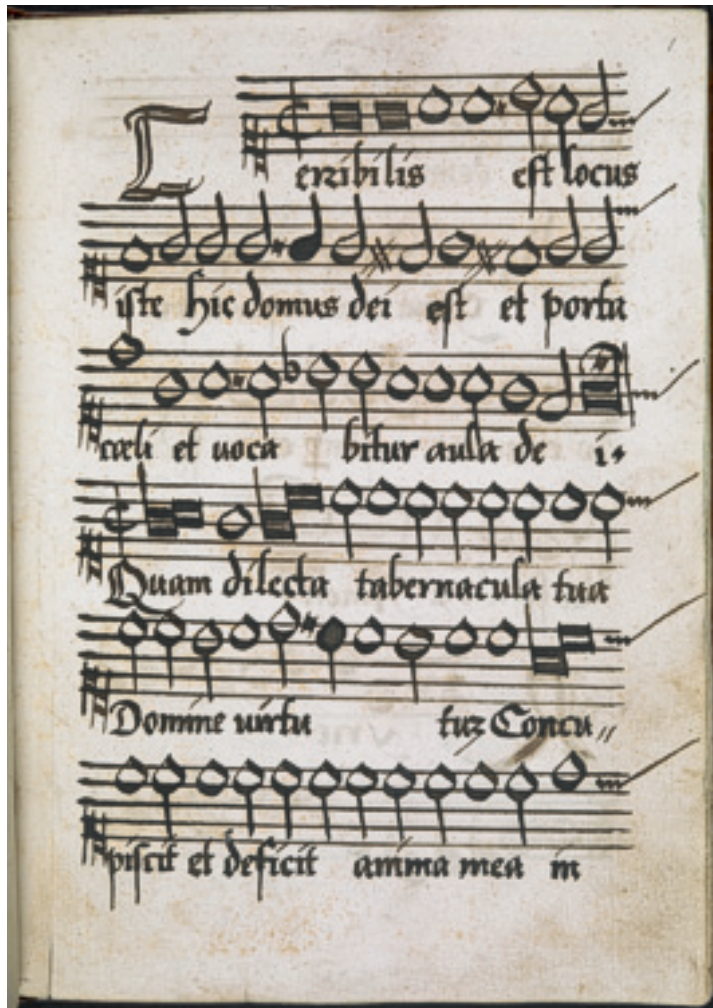 Terribilis est locus
iste hic domus dei est et porta
cæli et uoca bitur aula de i
Quam dilecta tabernacula tua
Domine uirtu tuz Concu
piscit et deficit anima mea in